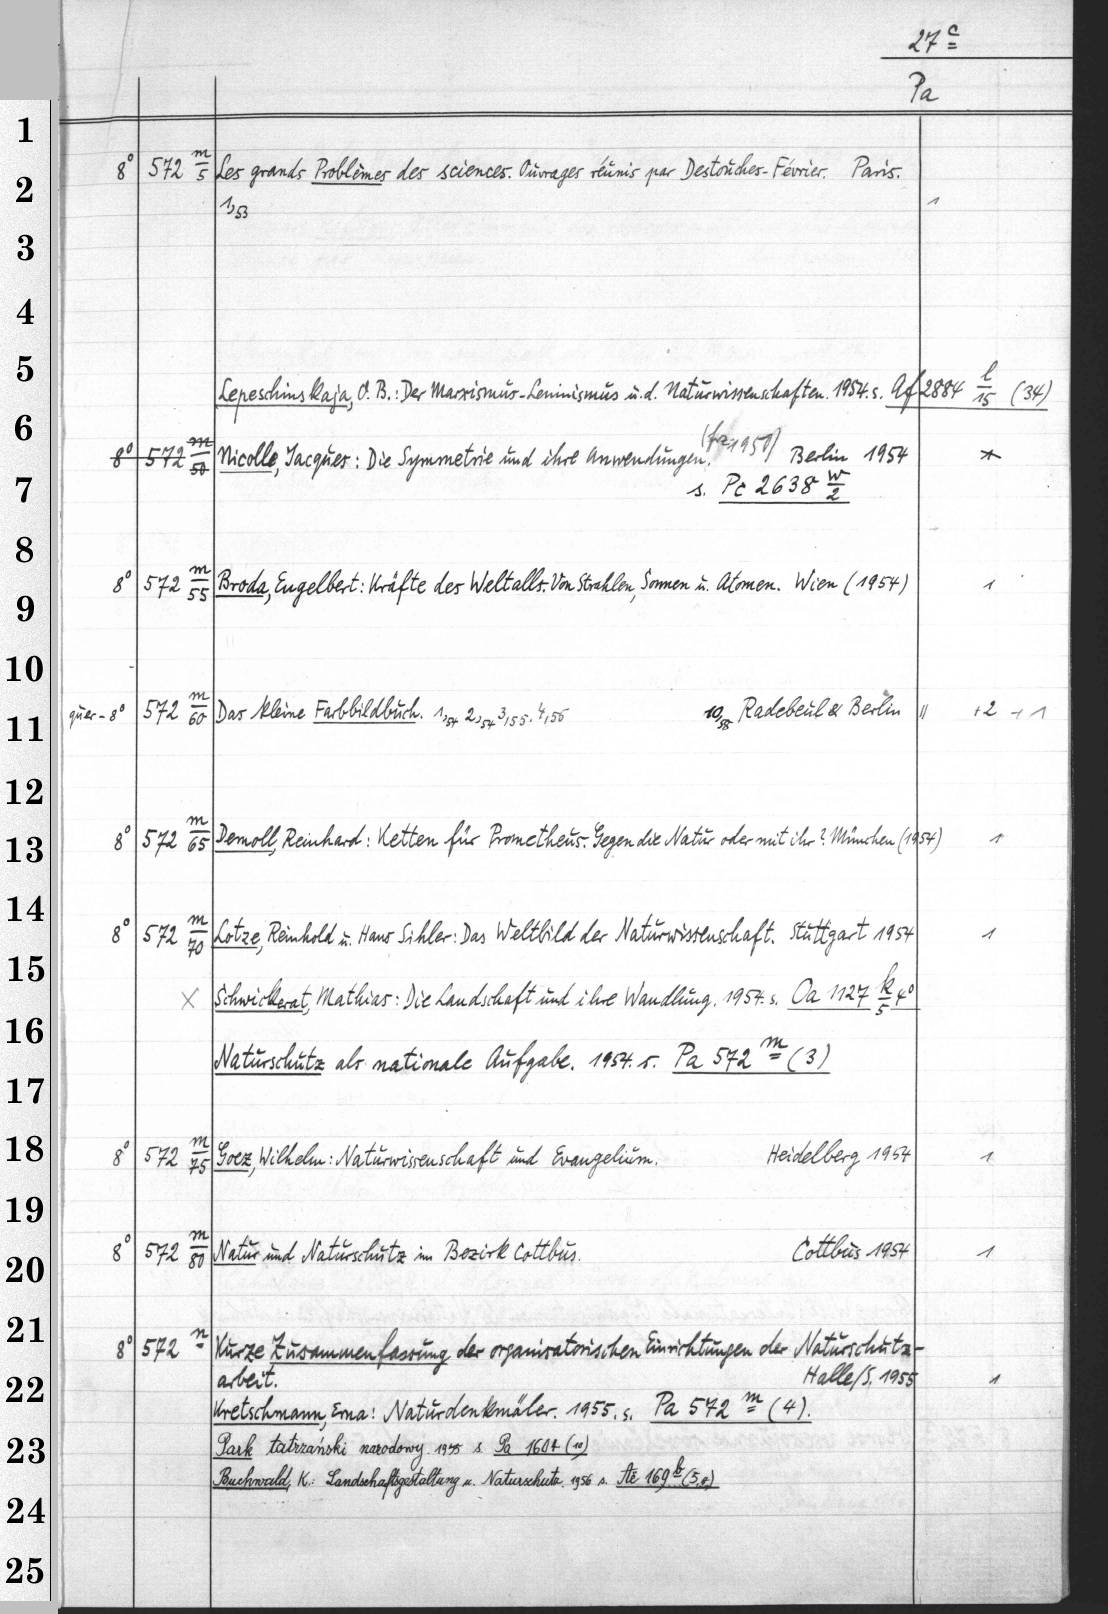 27 c
Pa
1
8° 572 m/5 Les grands Problèmes des sciences. Ouvrages réunis par Destouches-Février. Paris.
2
1,53 1
3
4
5
Lepeschinskaja, O. B.: Der Marxismus-Leninismus u. d. Naturwissenschaften. 1954. s. Af 2884 l/15 (34)
6
(frz 1950)
8° 572 m/50 Nicolle, Jacques: Die Symmetrie und ihre Anwendungen. Berlin 1954
7
s. Pc 2638 w/2
8
8° 572 m/55 Broda, Engelbert: Kräfte des Weltalls. Von Strahlen, Sonnen u. Atomen. Wien (1954) 1
9
10
quer-8° 572 m/60 Das kleine Farbbildbuch. 1,54 2,54 3,55. 4,56 10,58 Radebeul & Berlin " +2 +1
11
12
8° 572 m/65 Demoll, Reinhard: Ketten für Prometheus. Gegen die Natur oder mit ihr? München (1954) 1
13
14
8° 572 m/70 Lotze, Reinhold u. Hans Sihler: Das Weltbild der Naturwissenschaft. Stuttgart 1954 1
15
X Schwickerat, Mathias: Die Landschaft und ihre Wandlung. 1954. s. Oa 1127 k/5 4°
16
Naturschutz als nationale Aufgabe. 1954. s. Pa 572 m (3)
17
18
8° 572 m/75 Goez, Wilhelm: Naturwissenschaft und Evangelium. Heidelberg 1954 1
19
8° 572 m/80 Natur und Naturschutz im Bezirk Cottbus. Cottbus 1954 1
20
21
8° 572 n Kurze Zusammenfassung der organisatorischen Einrichtungen der Naturschutz-
arbeit. Halle/S. 1955 1
22
Kretschmann, Erna: Naturdenkmäler. 1955. s. Pa 572 m (4).
23
Park tatrzański narodowy. 1955 s Pa 1604 (10)
Buchwald, K.: Landschaftsgestaltung u. Naturschutz. 1956 s. 169 b
24
25